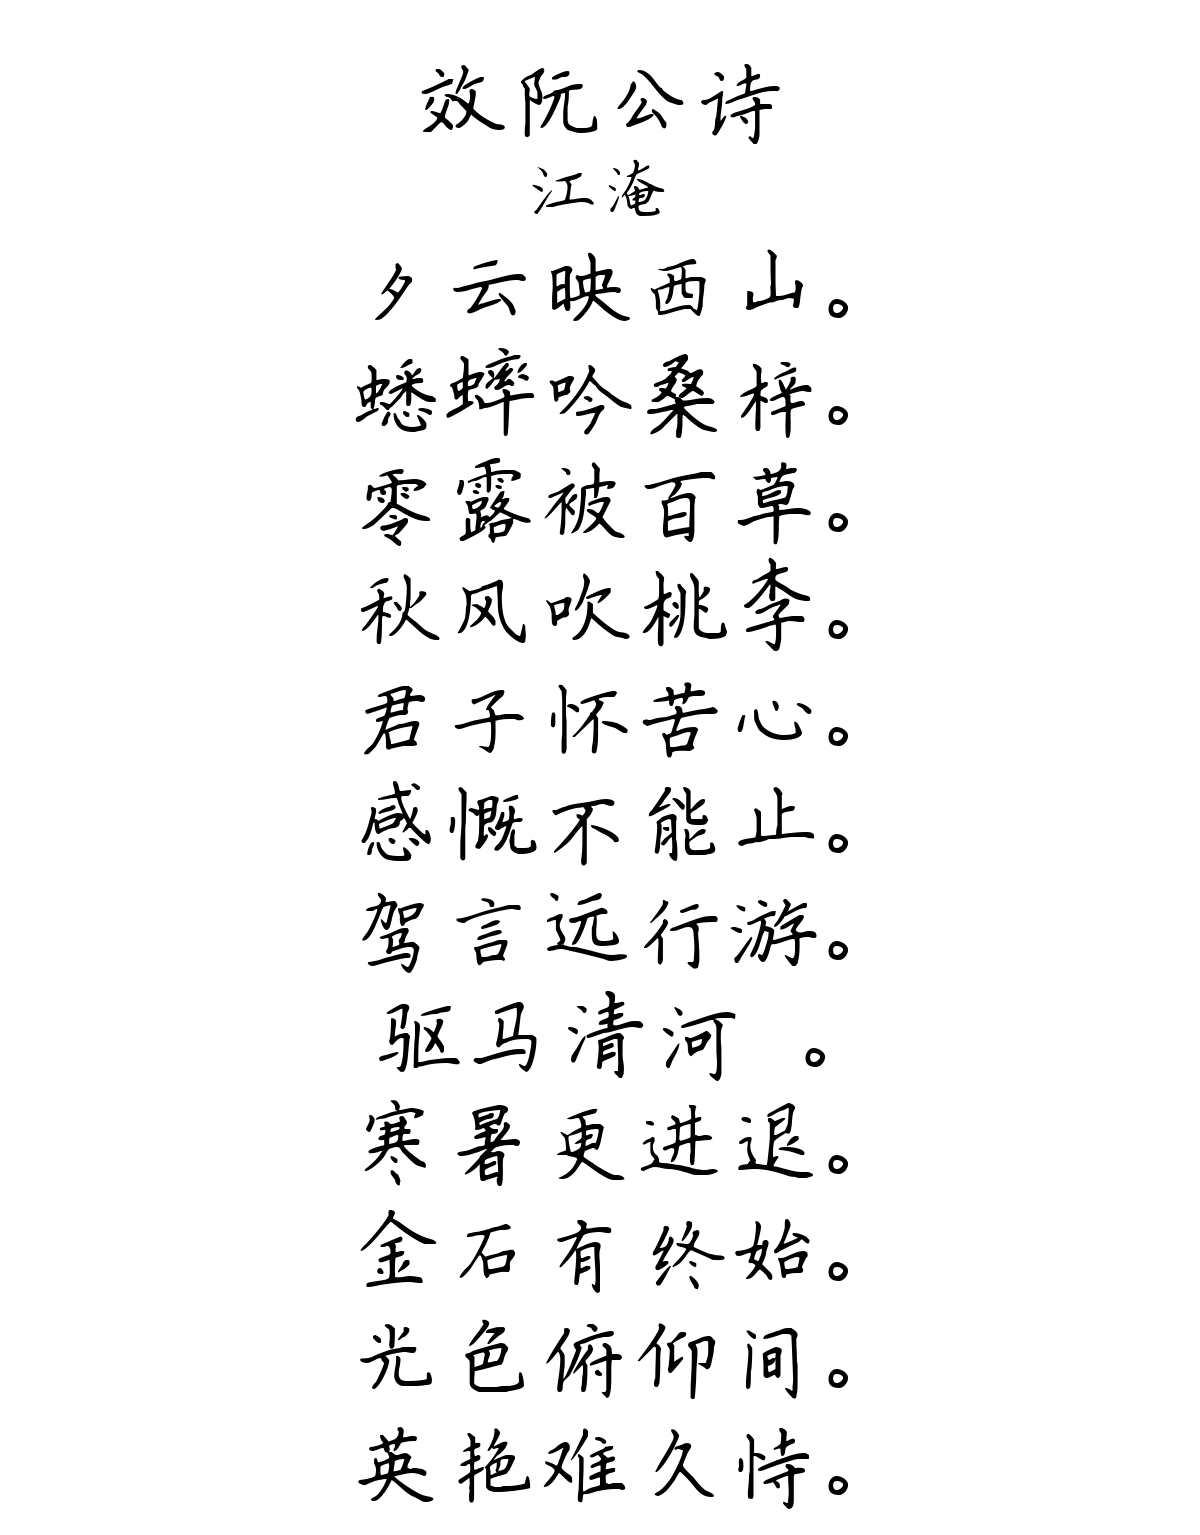 效阮公诗
江淹
夕云映西山。
蟋蟀吟桑梓。
零露被百草。
秋风吹桃李。
君子怀苦心。
感慨不能止。
驾言远行游。
驱马清河 。
寒暑更进退。
金石有终始。
光色俯仰间。
英艳难久恃。